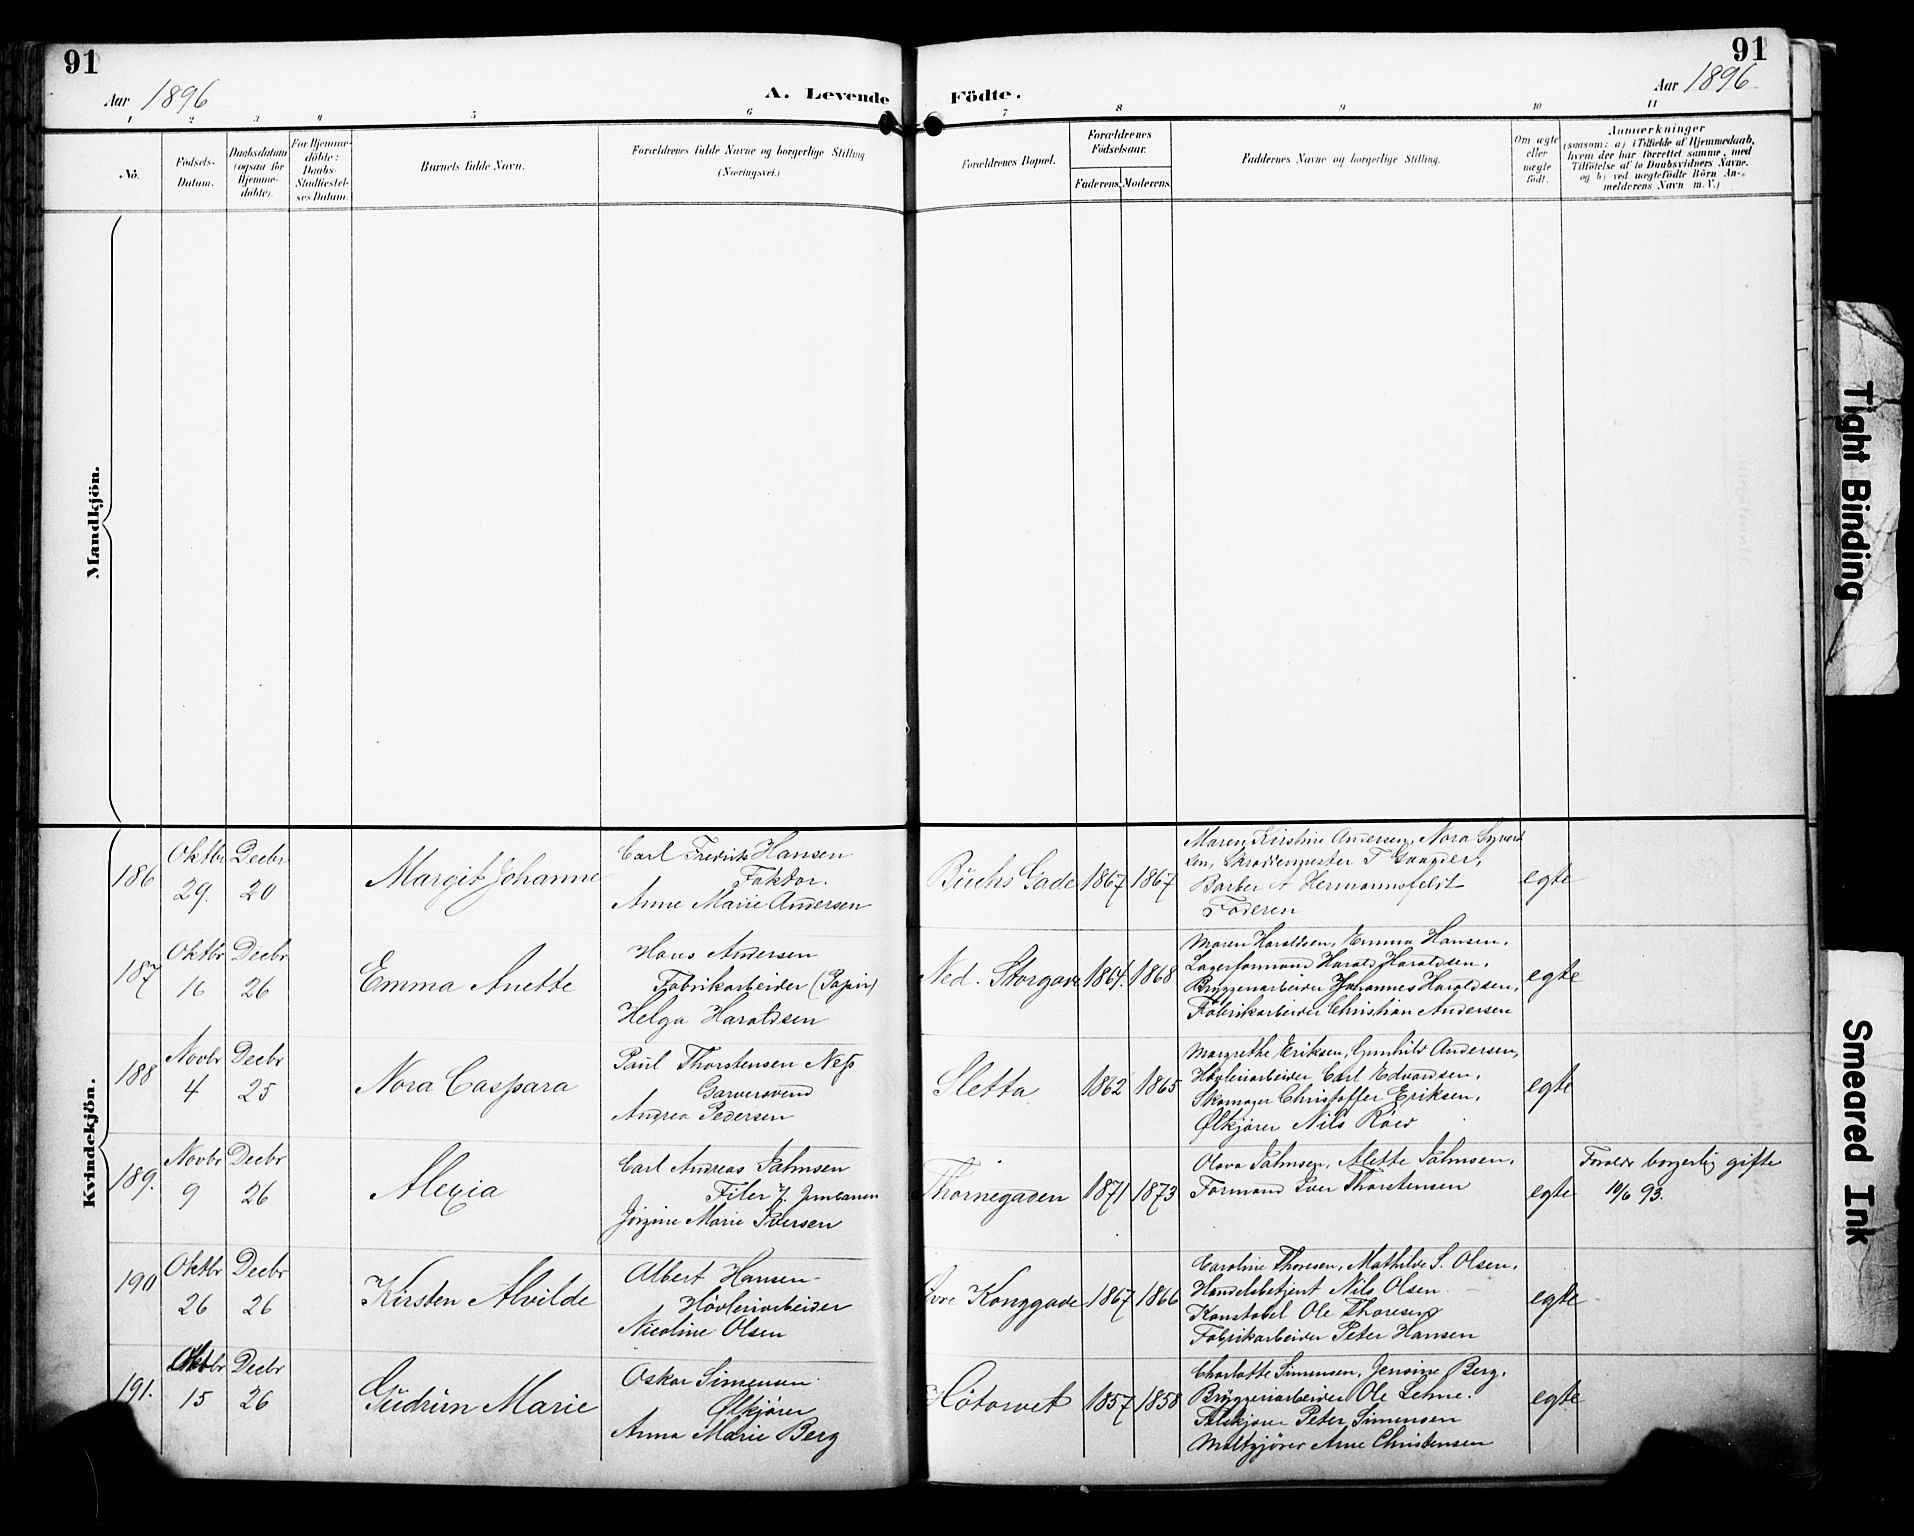 91
Aar 1896
A. Levende
1 2 3 4 5 6
No.
Födsels-Datum.
Daabsdatum (ogsaa for Hjemme-döbte).
For Hjemme-döbte: Daabs-Stadfæstel-ses Datum.
Barnets fulde Navn.
Forældrenes fulde Navne og borgerlige Stilling (Næringsvei.)
Mandkjön.
Kvindekjön.
186
Oktbr 29.
Decbr 20
Margit Johanne
Carl Fredrik Hansen
Faktor.
Anne Marie Andersen
187
Oktbr 16
Decbr 26
Emma Anette
Hans Andersen
Fabrikarbeider (Papir)
Helga Haraldsen
188
Novbr 4
Decbr 25
Nora Caspara
Paul Thorstensen Ness
Garversvend
Andrea Pedersen
189.
Novbr 9
Decbr 26
Alexia
Carl Andreas Salmsen
Filer v. Jernbanen
Jörgine Marie Iversen
190
Oktbr 26
Decbr 26
Kirsten Alvilde
Albert Hansen
Hövleriarbeider
Nicoline Olsen
191.
Oktbr 15
Decbr 26
Gudrun Marie
Oskar Simensen
Ølkjörer
Anna Marie Berg
91
Aar 1896.
Födte.
7 8 9 10 11
Forældrenes Bopæl.
Forældrenes Födselsaar.
Faderens. Moderens.
Faddernes Navne og borgerlige Stilling.
Om ægte eller uægte födt.
Anmærkninger
(saasom: a) i Tilfælde af Hjemmedaab,
hvem der har forrettet samme, med
Tilföielse af to Daabsvidners Navne.
og b) ved uægtefödte Börn An-
melderens Navn m. V.)
Buchs Gade
1867 1867
Maren Kirstine Andersen, Nora Syvert
sen, Skræddermester T
Barber A Hermannsfeldt
Faderen
egte
Ned. Storgade
1864. 1868
Maren Haraldsen, Emma Hansen,
Lagerformand Harald Haraldsen,
Bryggeriarbeider Johannes Haraldsen,
Fabrikarbeider Christian Andersen
egte
Sletta
1862 1865
Margrethe Eriksen, Gunhild Andersen,
Hövleriarbeider Carl Edvardsen,
Skomager Christoffer Eriksen,
Ølkjörer Nils
egte
Thornegaden
1871 1873
Olava Salmsen, Alette Salmsen,
Formand Iver Thorstensen
egte
Foreldr borgerlig gifte
10/6 93.
Övre Konggade
1867 1866
Caroline Thoresen, Mathilde S. Olsen,
Handelsbetjent Nils Olsen
Konstabel Ole Thoresen
Fabrikarbeider Peter Hansen
egte
Hötorvet
1857 1858
Charlotte Simensen, Jensine Berg,
Bryggeriarbeider Ole Lehne.
Ølkjörer Peter Simensen
Maltgjörer Arne Christensen
egte
Tight Binding
Smeared Ink